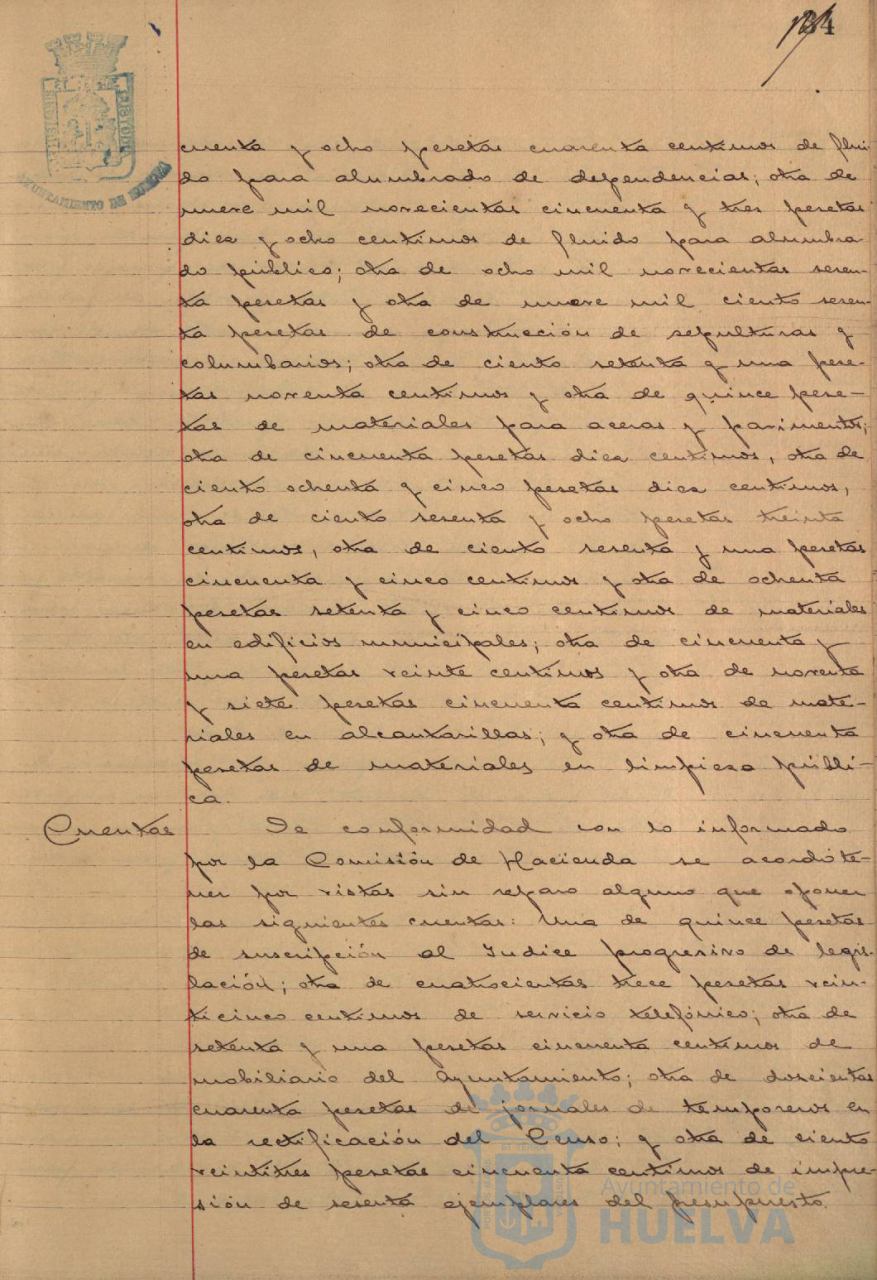 134
AYUNTAMIENTO DE HUELVA
cuenta y ocho pesetas cuarenta centimos de flui-
do para alumbrado de dependencias; otra de
nueve mil novecientas cincuenta y tres pesetas
diez y ocho centimos de fluido para alumbra-
do público; otra de ocho mil novecientas seten-
ta pesetas y otra de nueve mil ciento seten-
ta pesetas de construcción de sepulturas y
columbarios; otra de ciento setenta y una pese-
tas noventa centimos y otra de quince pese-
tas de materiales para aceras y pavimentos;
otra de cincuenta pesetas diez centimos, otra de
ciento ochenta y cinco pesetas diez centimos,
otra de ciento sesenta y ocho pesetas treinta
centimos, otra de ciento sesenta y una pesetas
cincuenta y cinco centimos y otra de ochenta
pesetas setenta y cinco centimos de materiales
en edificios municipales; otra de cincuenta y
una pesetas veinte centimos y otra de noventa
y siete pesetas cincuenta centimos de mate-
riales en alcantarillas; y otra de cincuenta
pesetas de materiales en limpieza públi-
ca.
Cuentas De conformidad con lo informado
por la Comisión de Hacienda se acordó te-
ner por vistas sin reparo alguno que oponer
las siguientes cuentas: Una de quince pesetas
de suscripción al Indice progresivo de legis-
lación; otra de cuatrocientas trece pesetas vein-
ticinco centimos de servicio telefónico; otra de
setenta y una pesetas cincuenta centimos de
mobiliario del Ayuntamiento; otra de doscientas
cuarenta pesetas de jornales de temporeros en
la rectificación del Censo; y otra de ciento
veintitres pesetas cincuenta centimos de impre-
sión de sesenta ejemplares del presupuesto.
Ayuntamiento de
HUELVA